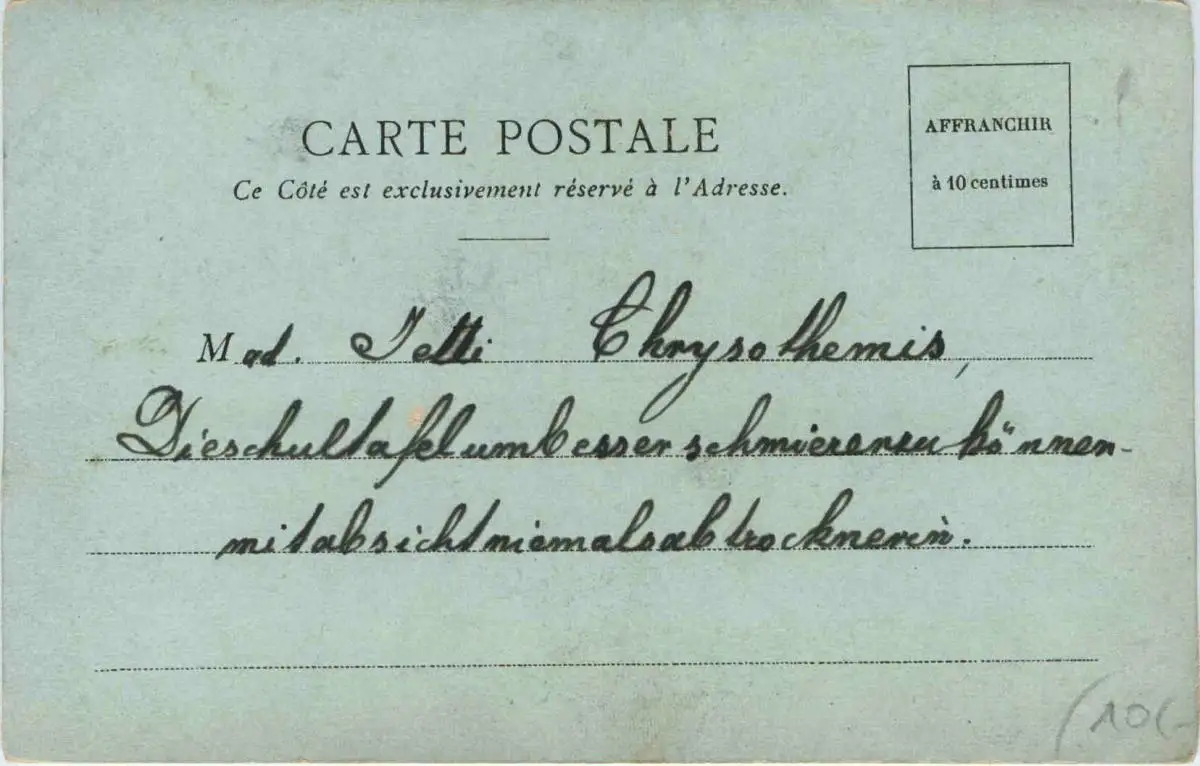 CARTE POSTALE
Ce Côté est exclusivement réservé à l'Adresse.
AFFRANCHIR
à 10 centimes
Mad. Jetti Chrysothemis,
Dieschultafelumbesserschmierenzukönnen-
mitabsichtniemalsabtrocknerin.
(10(-